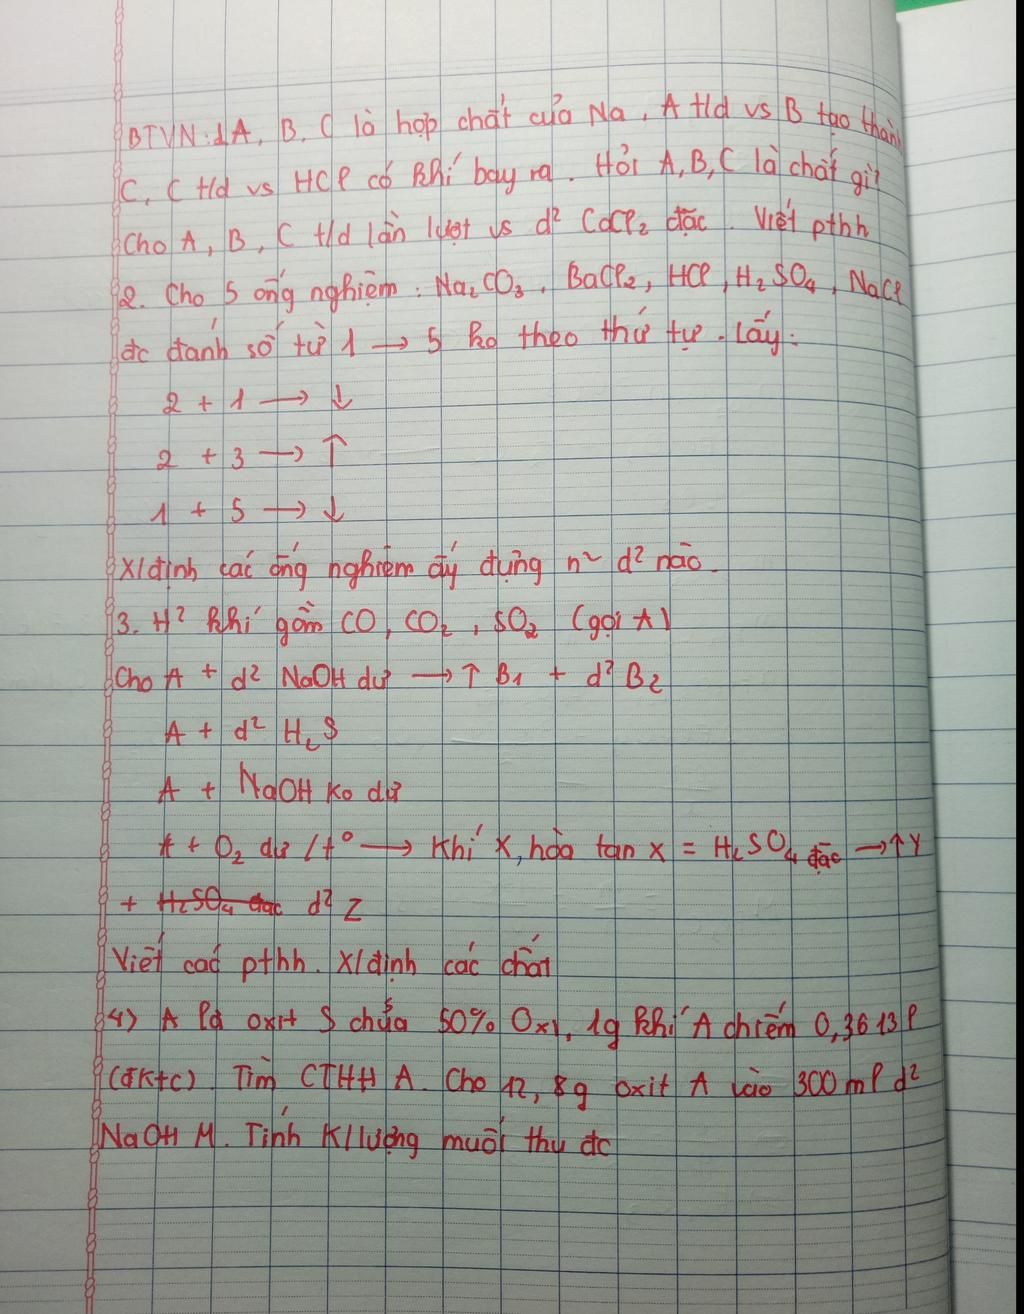 BTVN: 1 A, B, C là hợp chất của Na. A t/d vs B tạo thành
C, C t/d vs HCl có khí bay ra. Hỏi A, B, C là chất gì?
Cho A, B, C t/d lần lượt vs d² CaCl₂ đặc. Viết pthh
2. Cho 5 ống nghiệm: Na₂CO₃, BaCl₂, HCl, H₂SO₄, NaCl
đc đánh số từ 1 → 5 ko theo thứ tự. Lấy:
2 + 1 → ↓
2 + 3 → ↑
1 + 5 → ↓
X/định các ống nghiệm ấy đựng n~ d² nào.
3. H² khí gồm CO, CO₂, SO₂ (gọi A)
Cho A + d² NaOH dư → ↑ B₁ + d² B₂
A + d² H₂S
A + NaOH ko dư
A + O₂ dư /t° → khí X, hòa tan X = H₂SO₄ đặc → ↑Y
+ H₂SO₄ đặc d² Z
Viết các pthh. X/định các chất
4) A là oxit S chứa 50% Oxi, 1g khí A chiếm 0,3613l
(đktc). Tìm CTHH A. Cho 12,8g oxit A vào 300ml d²
NaOH M. Tính k/lượng muối thu đc